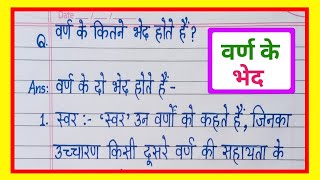 Q. वर्ण के कितने भेद होते हैं?
वर्ण के
भेद
Ans: वर्ण के दो भेद होते हैं -
1. स्वर :- 'स्वर' उन वर्णों को कहते हैं, जिनका
उच्चारण किसी दूसरे वर्ण की सहायता के